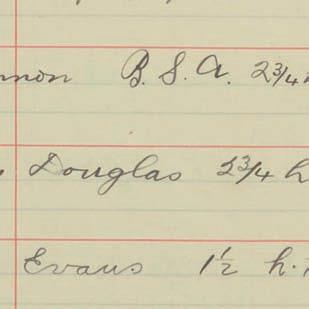 B.S.A. 2¾
Douglas 2¾ h
Evans 1½ h.